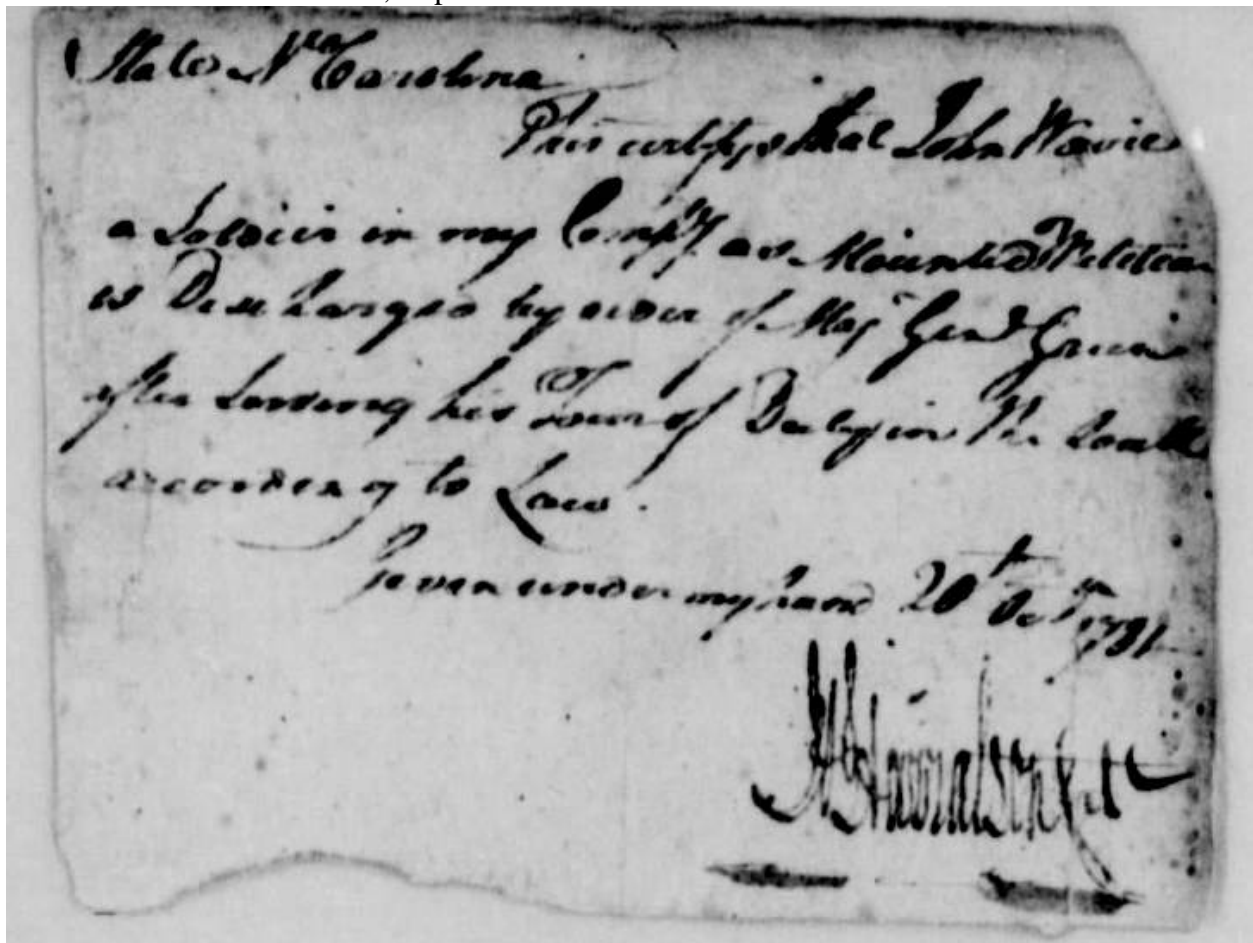 State No Carolina
This certifys that John Wavie
a Soldier in my Compy as Mounted Militia
is Discharged by order of Majr Genl Green
after Serving his Tour of Duty in the South
according to Law.
Given under my hand 20th Octr 1781